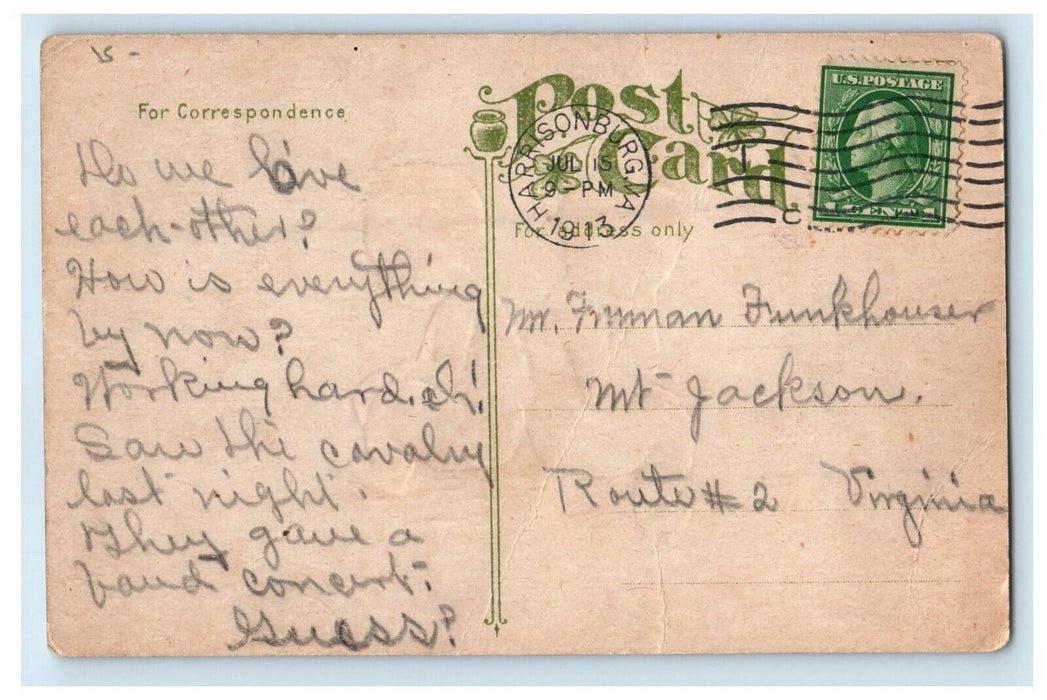 15 -
For Correspondence
Post Card
U.S. POSTAGE
1 CENT 1
HARRISONBURG VA
JUL 15
9 - PM
1913
For address only
Do we love
each-other?
How is everything
by now?
Working hard, eh!
Saw the cavalry
last night.
They gave a
band concert.
Guess?
Mr. Fruman Funkhouser
Mt Jackson.
Route # 2 Virginia